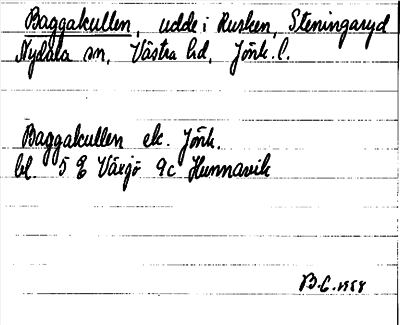 Baggakullen, udde i Rusken, Steningaryd
Nydala sn, Västra hd, Jönk. l.
Baggakullen ek. Jönk.
bl. 5 E Växjö 9c Hunnavik
B.C. 1958